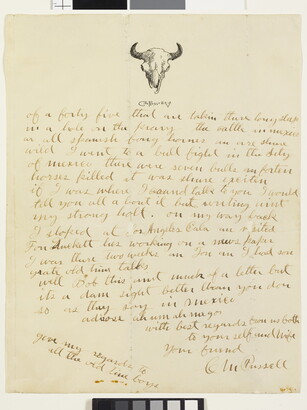 of a forty five that are taken there long sleep
in a hole on the prary the cattle in mexico
or all spanish long hornes an are shure
wild I went to a bull fight in the Sity
of mexico there were seven bulls an forten
horses killed it was shure exsiten
if I was where I could talk to you I would
tell you all about it but writing aint
my strong holt. on my way back
I stoped at Los Angeles Cala an visited
Ton hes working on a newspaper
I was there two weeks an Ton an I had som
grate old time talks
well Bob this aint much of a letter but
its a dam sight better than you don
so as they say in Mexico
adiose
with best regards from us both
to your self and wife
Your friend
CM Russell
give my regards to
all the old time boys